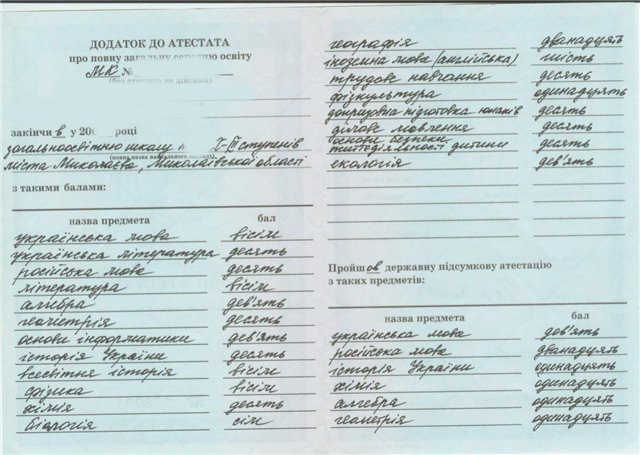 ДОДАТОК ДО АТЕСТАТА
про повну загальну середню освіту
МК №
(без атестата не дійсний)
закінчив у 200 році
загальноосвітню школу І-ІІІ ступенів
(повна назва навчального закладу)
міста Миколаєва, Миколаївської області
з такими балами:
назва предмета бал
українська мова вісім
українська література десять
російська мова десять
література вісім
алгебра дев'ять
геометрія десять
основи інформатики дев'ять
історія України десять
всесвітня історія вісім
фізика вісім
хімія десять
біологія сім
географія дванадцять
іноземна мова (англійська) шість
трудове навчання десять
фізкультура одинадцять
допризовна підготовка юнаків десять
ділове мовлення десять
основи безпеки
життєдіяльності дитини десять
екологія дев'ять
Пройшов державну підсумкову атестацію
з таких предметів:
назва предмета бал
українська мова дев'ять
російська мова дванадцять
історія України одинадцять
хімія одинадцять
алгебра одинадцять
геометрія одинадцять